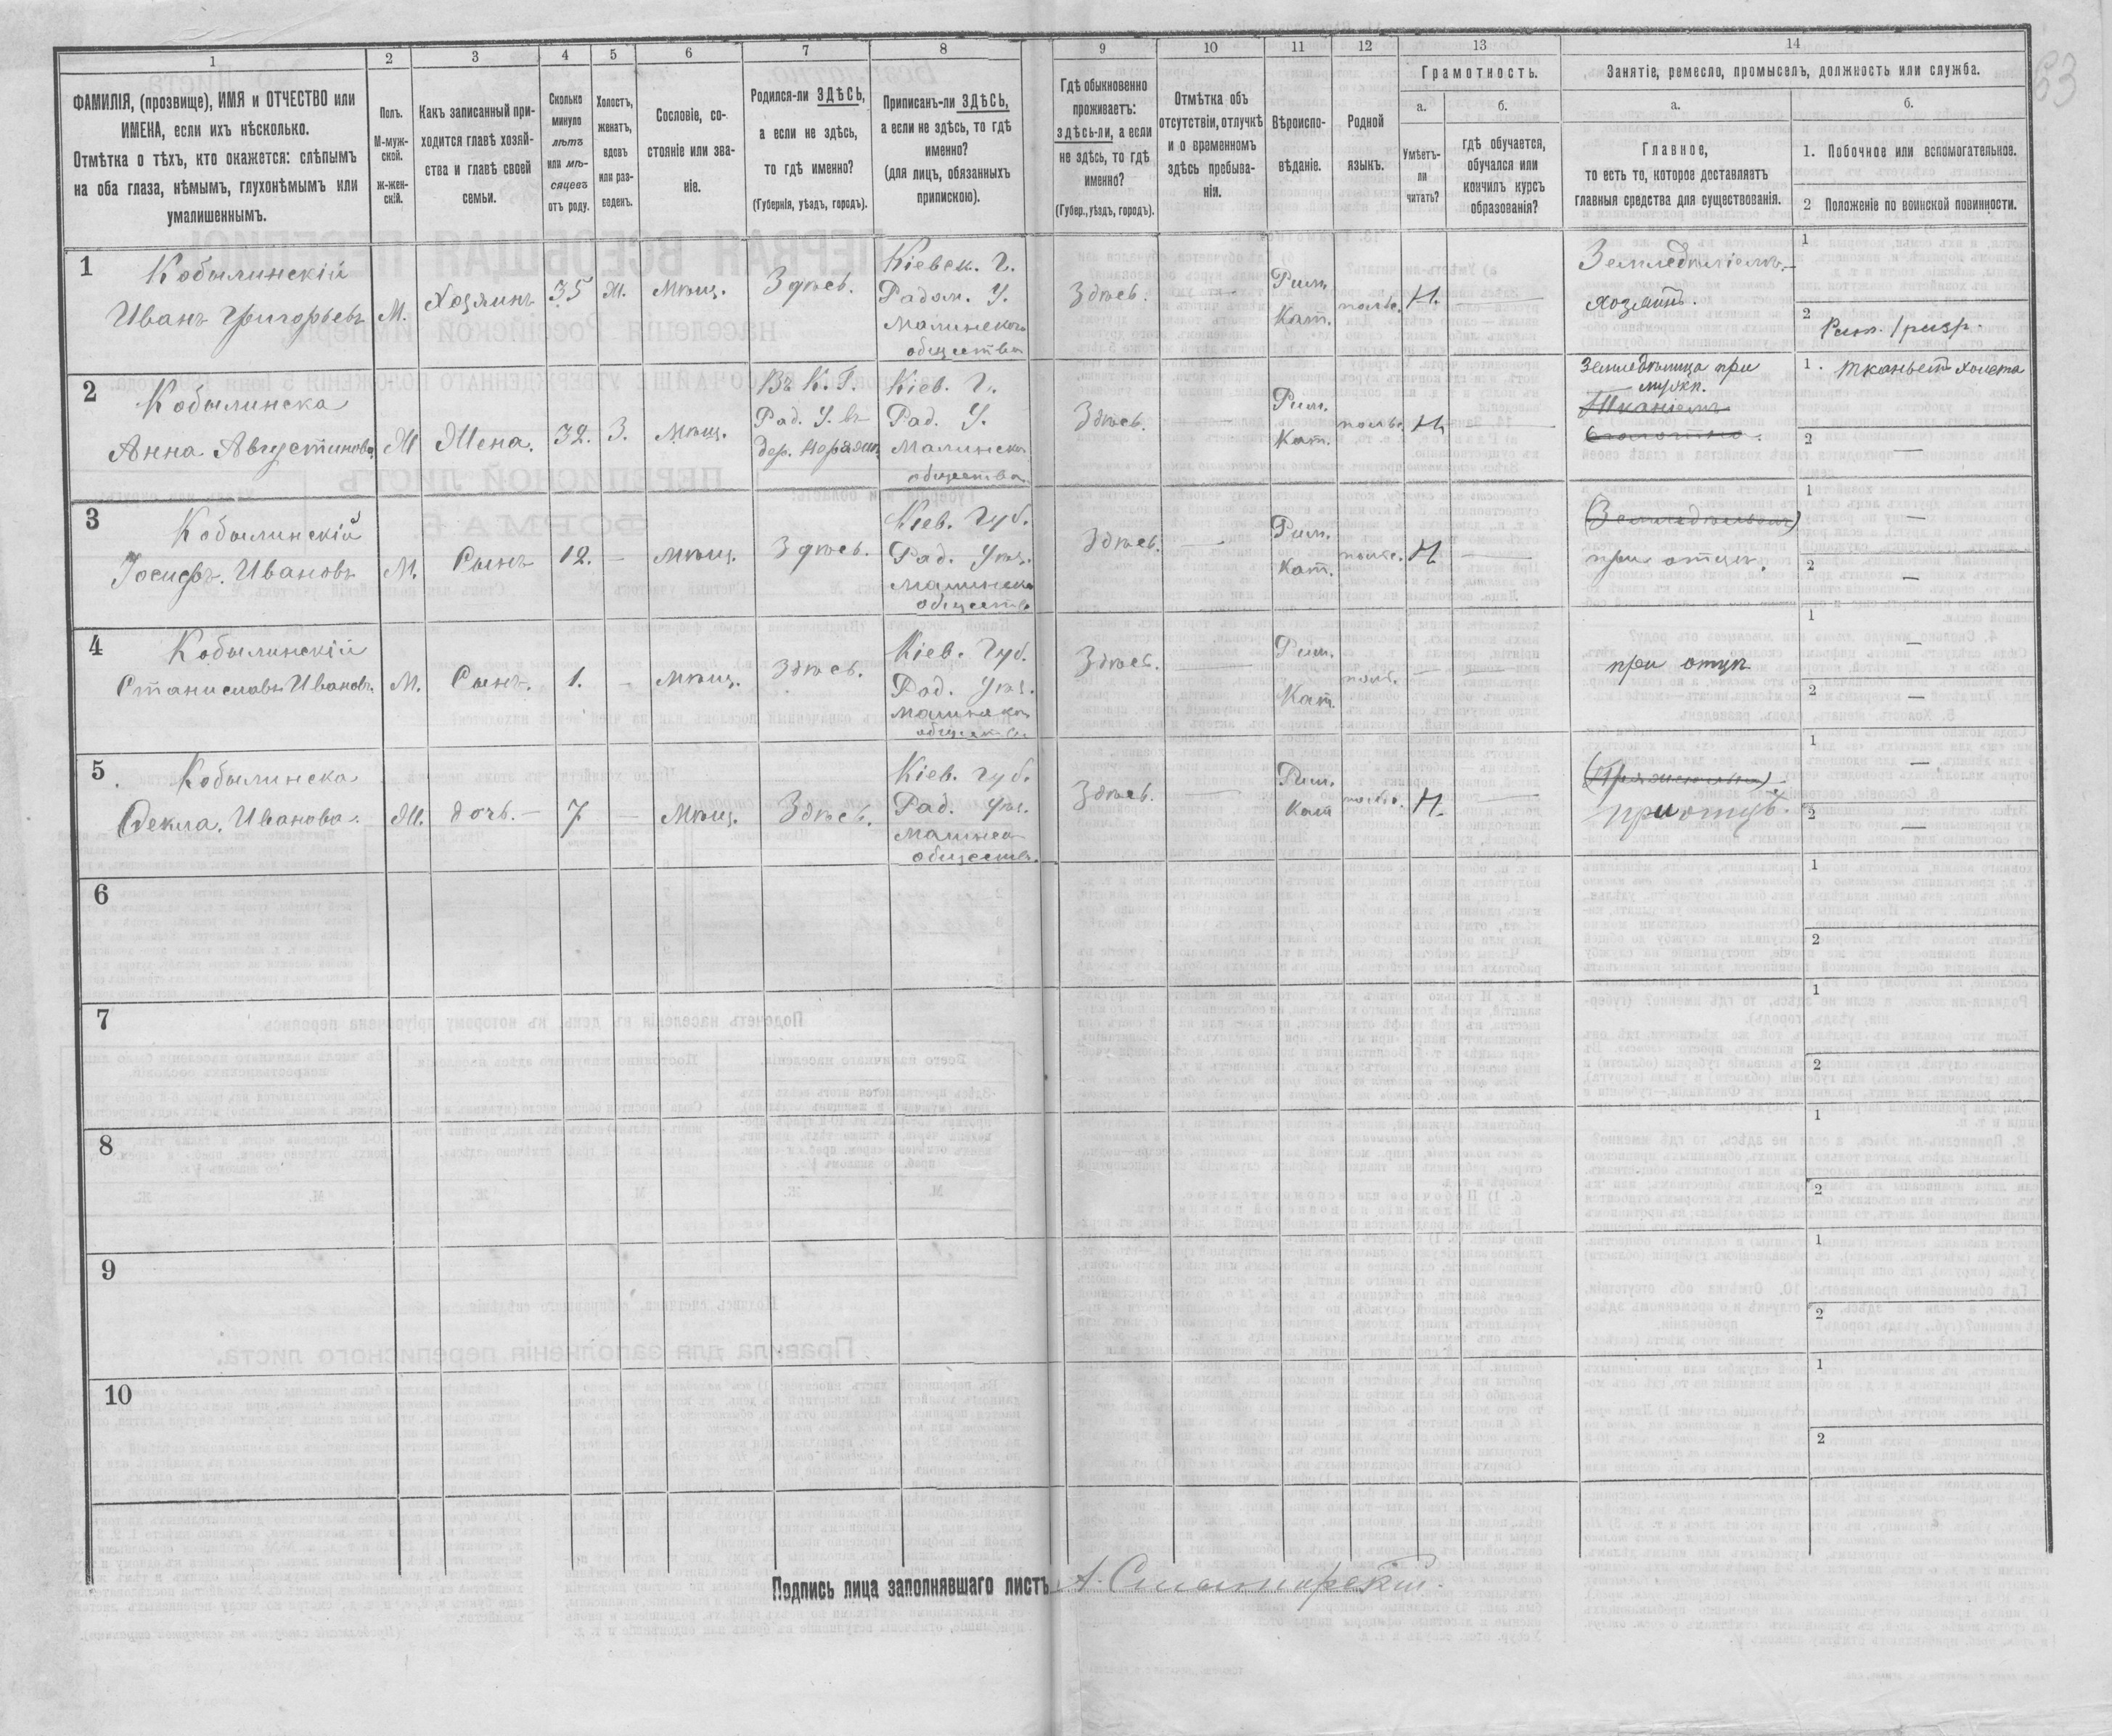 63
1
2
3
4
5
6
7
8
9
10
11
12
13
14
ФАМИЛІЯ, (прозвище), ИМЯ и ОТЧЕСТВО или
ИМЕНА, если ихъ нѣсколько.
Отмѣтка о тѣхъ, кто окажется: слѣпымъ
на оба глаза, нѣмымъ, глухонѣмымъ или
умалишеннымъ.
Полъ.
М-муж-
ской.
ж-жен-
скій.
Какъ записанный при-
ходится главѣ хозяй-
ства и главѣ своей
семьи.
Сколько
минуло
лѣтъ
или мѣ-
сяцевъ
отъ роду.
Холостъ,
женатъ,
вдовъ
или раз-
веденъ.
Сословіе, со-
стояніе или зва-
ніе.
Родился-ли ЗДѢСЬ,
а если не здѣсь,
то гдѣ именно?
(Губернія, уѣздъ, городъ).
Приписанъ-ли ЗДѢСЬ,
а если не здѣсь, то гдѣ
именно?
(для лицъ, обязанныхъ
припискою).
Гдѣ обыкновенно
проживаетъ:
здѣсь-ли, а если
не здѣсь, то гдѣ
именно?
(Губер., уѣздъ, городъ).
Отмѣтка объ
отсутствіи, отлучкѣ
и о временномъ
здѣсь пребыва-
ніи.
Вѣроиспо-
вѣданіе.
Родной
языкъ.
Грамотность.
а.
б.
Умѣетъ-
ли
читать?
гдѣ обучается,
обучался или
кончилъ курсъ
образованія?
Занятіе, ремесло, промыселъ, должность или служба.
а.
б.
Главное,
то есть то, которое доставляетъ
главныя средства для существованія.
1. Побочное или вспомогательное.
2 Положеніе по воинской повинности.
1
Кобылинскій
Иванъ Григорьевъ
М.
Хозяинъ
35
Ж.
Мѣщ.
Здѣсь.
Кіевск. Г.
Радом. У.
Малинского
общества
Здѣсь.
—
Рим.
Кат.
польс.
Н.
—
Земледѣліемъ.—
хозяинъ.
1
2
2
Кобылинска
Анна Августинова
Ж
Жена.
32.
З.
Мѣщ.
Въ К. Г.
Рад. У. въ
дер.
Кіев. Г.
Рад. У.
Малинско
общества
Здѣсь.
—
Рим.
Кат.
польс.
Н
—
Земледѣлица при
мужѣ.
Тканіемъ
1. тканьем холста
2 —
3
Кобылинскій
Іосифъ. Ивановъ
М.
Сынъ
12.
—
Мѣщ.
Здѣсь.
Кіев. Губ.
Рад. Уѣз.
Малинско
обществ
Здѣсь.
—
Рим.
Кат.
польс.
Н
—
при отцѣ.
1 —
2 —
4
Кобылинскій
Станиславъ Ивановъ.
М.
Сынъ.
1.
—
Мѣщ.
Здѣсь.
Кіев. Губ.
Рад. Уѣз.
Малинско
Здѣсь.
—
Рим.
Кат
польс.
—
—
при отцѣ
1 —
2 —
5
Кобылинска
Ѳекла. Иванова.
Ж.
дочь. —
7
—
Мѣщ.
Здѣсь.
Кіев. Губ.
Рад. Уѣз.
Малинск
обществ.
Здѣсь.
—
Рим.
Кат
польс.
Н.
—
при отцѣ.
1
2 —
6
1
2
7
1
2
8
1
2
9
1
2
10
1
2
Подпись лица заполнявшаго листъ